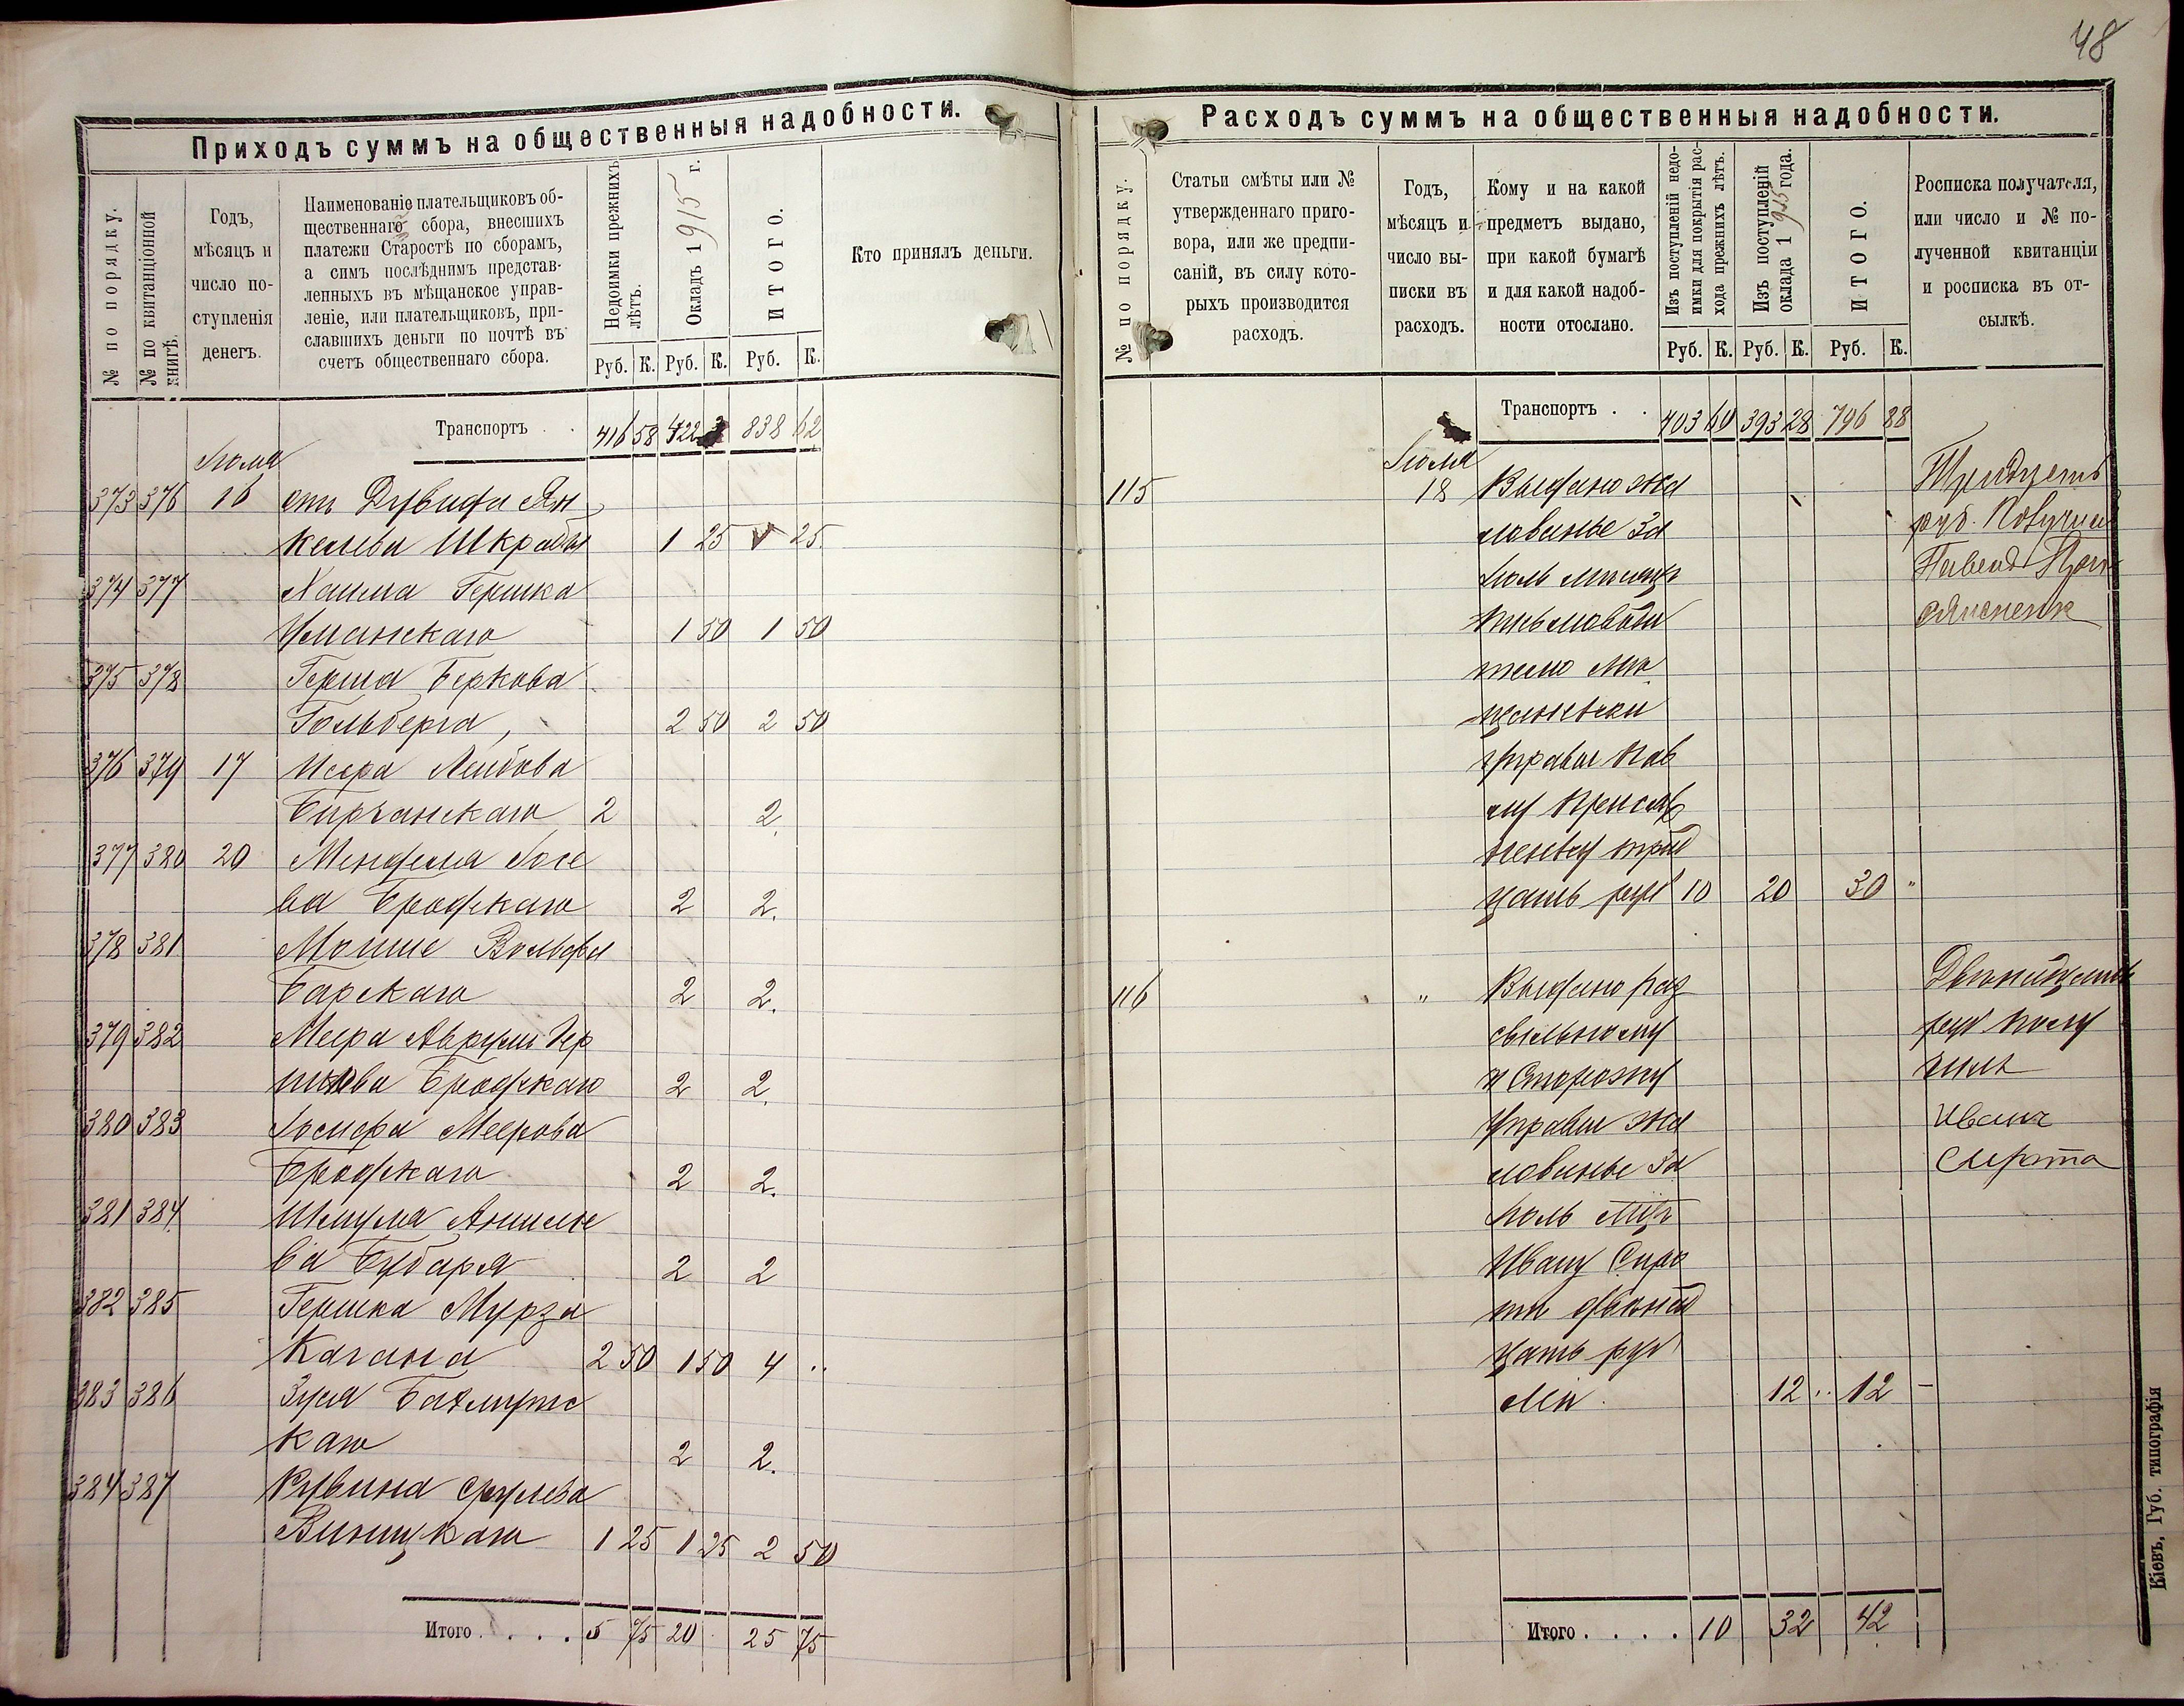 48
Приходъ суммъ на общественныя надобности.
№ по порядку.
№ по квитанціонной книгѣ.
Годъ,
мѣсяцъ и
число по-
ступленія
денегъ.
Наименованіе плательщиковъ об-
щественнаго сбора, внесшихъ
платежи Старостѣ по сборамъ,
а симъ послѣднимъ представ-
ленныхъ въ мѣщанское управ-
леніе, или плательщиковъ, при-
славшихъ деньги по почтѣ въ
счетъ общественнаго сбора.
Недоимки прежнихъ
лѣтъ.
Окладъ 1915 г.
ИТОГО.
Кто принялъ деньги.
Руб. К. Руб. К. Руб. К.
Транспортъ 416 58 422 838 62
Іюля
373 376 16 отъ Дувида Ян
келева Шкрабы 1 25 25
374 377 Хаима Гершка
Уманскаго 1 50 1 50
375 378 Герша Беркова
Гольберга, 2 50 2 50
376 379 17 Исера Лейбова
Бирчанскаго 2 2
377 380 20 Менделя Іосе
ва Бродскаго 2 2.
378 381 Мошие Вольфа
Барскаго 2 2.
379 382 Меера Аврум Гер
шкова Бродскаго 2 2.
380 383 Іосифа Меерова
Бродскаго 2 2.
381 384 Шмуля Аншеле
ва Бубаря 2 2
382 385 Гершка Мурза
Кагана 2 50 1 50 4 ..
383 386 Зуся Бахмутс
каго 2 2.
384 387 Рувина Срулева
Виницкаго 1 25 1 25 2 50
Итого . . . . 5 75 20 25 75
Расходъ суммъ на общественныя надобности.
№ по порядку.
Статьи смѣты или №
утвержденнаго приго-
вора, или же предпи-
саній, въ силу кото-
рыхъ производится
расходъ.
Годъ,
мѣсяцъ и
число вы-
писки въ
расходъ.
Кому и на какой
предметъ выдано,
при какой бумагѣ
и для какой надоб-
ности отослано.
Изъ поступленій недо-
имки для покрытія рас-
хода прежнихъ лѣтъ.
Изъ поступленій
оклада 1915 года.
ИТОГО.
Росписка получателя,
или число и № по-
лученной квитанціи
и росписка въ от-
сылкѣ.
Руб. К. Руб. К. Руб. К.
Транспортъ . . 403 60 393 28 796 88
Іюля
115 18 Выдано жа
лованье за
Іюль мѣсяцъ
письмоводи
телю Мѣ
щанской
управы Пав
лу
трид
цать руб 10 20 30 "
Тридцеть
руб. Получил
116 " Выдано раз
сыльному
и Сторожу
Управы жа
лованье за
Іюль мѣц
Ивану Сиро
ти двѣнад
цать руб
лей 12 .. 12 —
Двѣнадцать
руб полу
чилъ
Иванъ
Сирота
Итого . . . . 10 32 42
Кіевъ, Губ. типографія